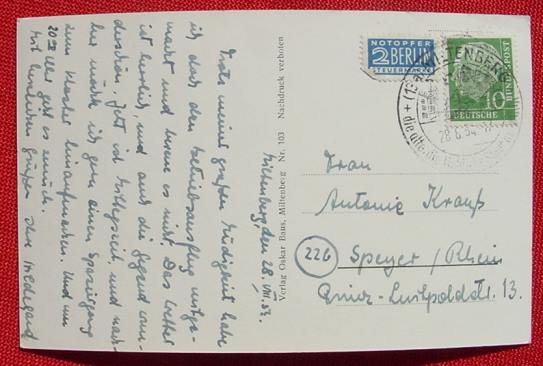 NOTOPFER
2 BERLIN
STEUERMARKE
MILTENBERG
28.8.54
DEUTSCHE
BUNDESPOST
10
Miltenberg, den 28.
Trotz meiner großen Müdigkeit habe
ich doch den Betriebsausflug mitge-
macht und bereue es nicht. Das Wetter
ist herrlich, und auch die Gegend
Jetzt ist Mittagszeit, und nach-
her möchte ich gern einen Spaziergang
zum Kloster hinaufmachen. Und um
20 Uhr geht es zurück.
Mit herzlichen Grüßen Ihre Hildegard
Verlag Oskar Baus, Miltenberg Nr. 103 Nachdruck verboten
Frau
Antonie Krauß
(22b) Speyer/Rhein
Luitpoldstr. 13.